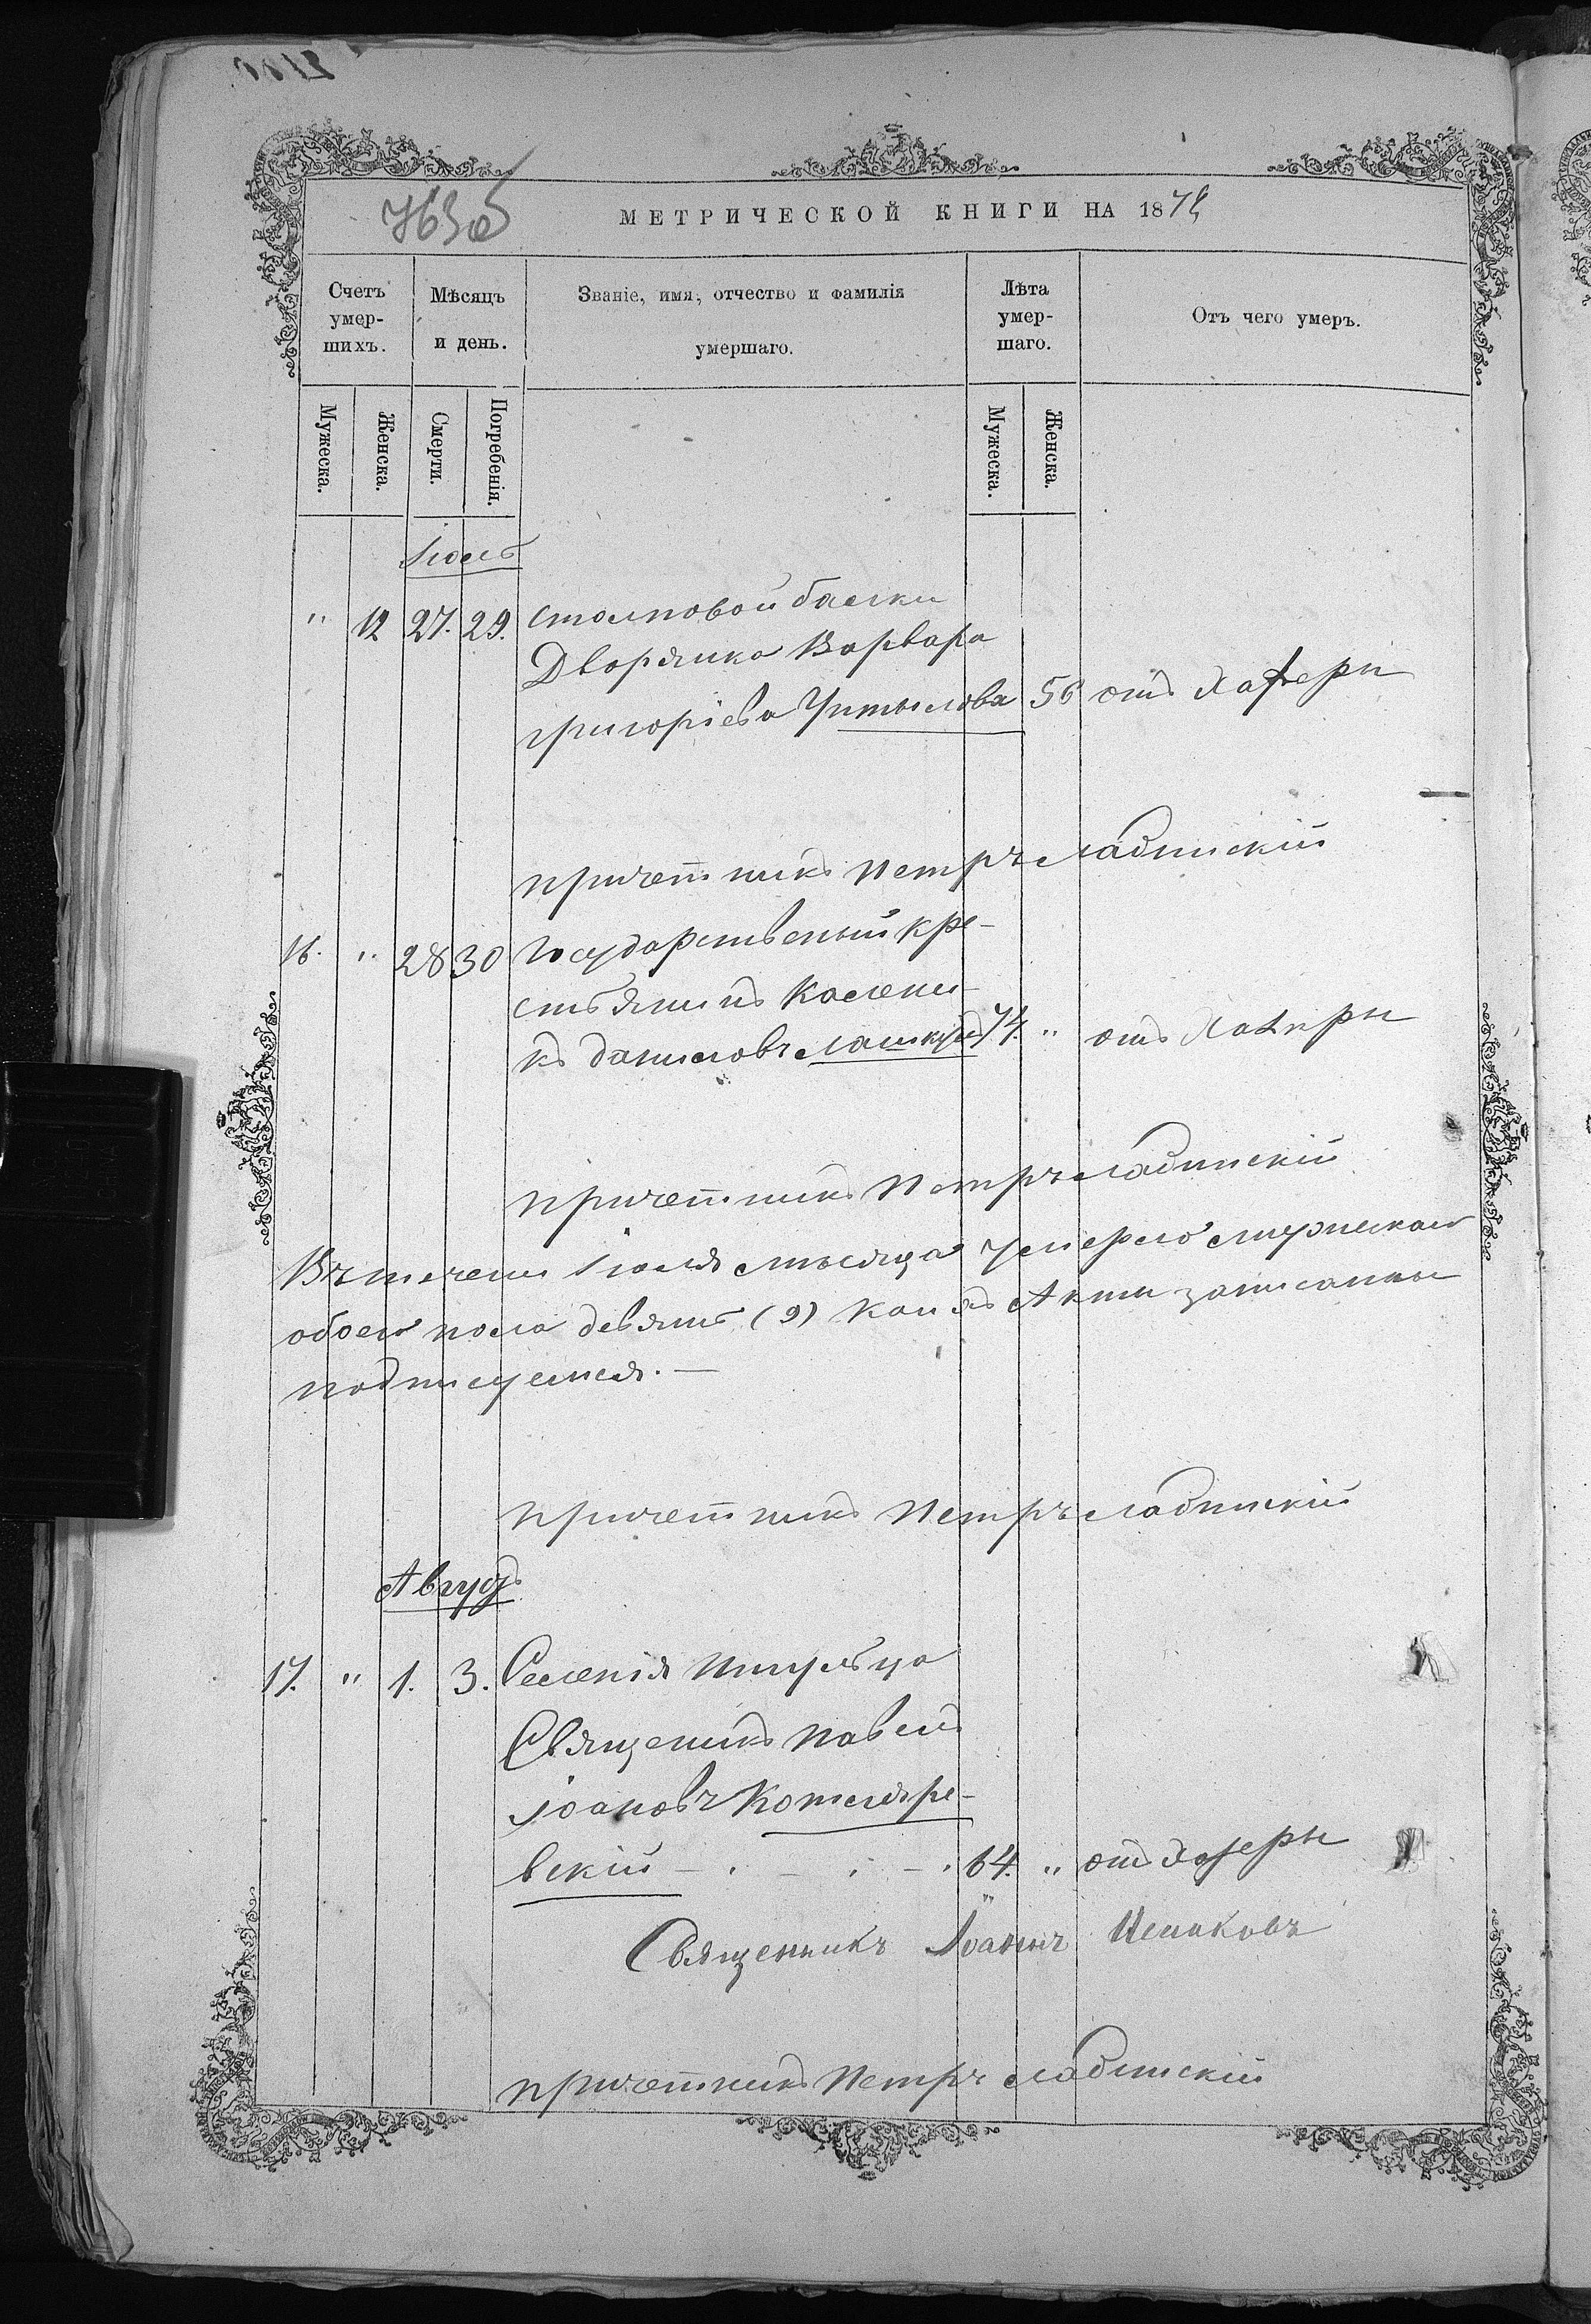 763об
МЕТРИЧЕСКОЙ КНИГИ НА 187
Счетъ умер-шихъ.
Мѣсяцъ и день.
Званіе, имя, отчество и фамилія умершаго.
Лѣта умер-шаго.
Отъ чего умеръ.
Мужеска.
Женска.
Смерти.
Погребенія.
Мужеска.
Женска.
Іюль
" 12 27. 29. Столповой балки
Дворянка Варвара
григоріева 56 отъ Холеры
причетникъ Петръ Ладинскій
16. " 28 30 Государственый кре-
стьянинъ Калени-
къ даниловъ Лашкулъ 74. " отъ Холеры
причетникъ Петръ Ладинскій
Въ течени Іюля мѣсяца Умерло мужескаго
обоего пола девять (9) Акти записанны
подписуемся. —
причетникъ Петръ Ладинскій
Августъ
17. " 1. 3. Селенія
Священикъ Павелъ
Іоановъ Котляре-
вскій — . — . — . 64. " отъ Холеры
Священникъ Іоаннъ
причетникъ Петръ Ладинскій